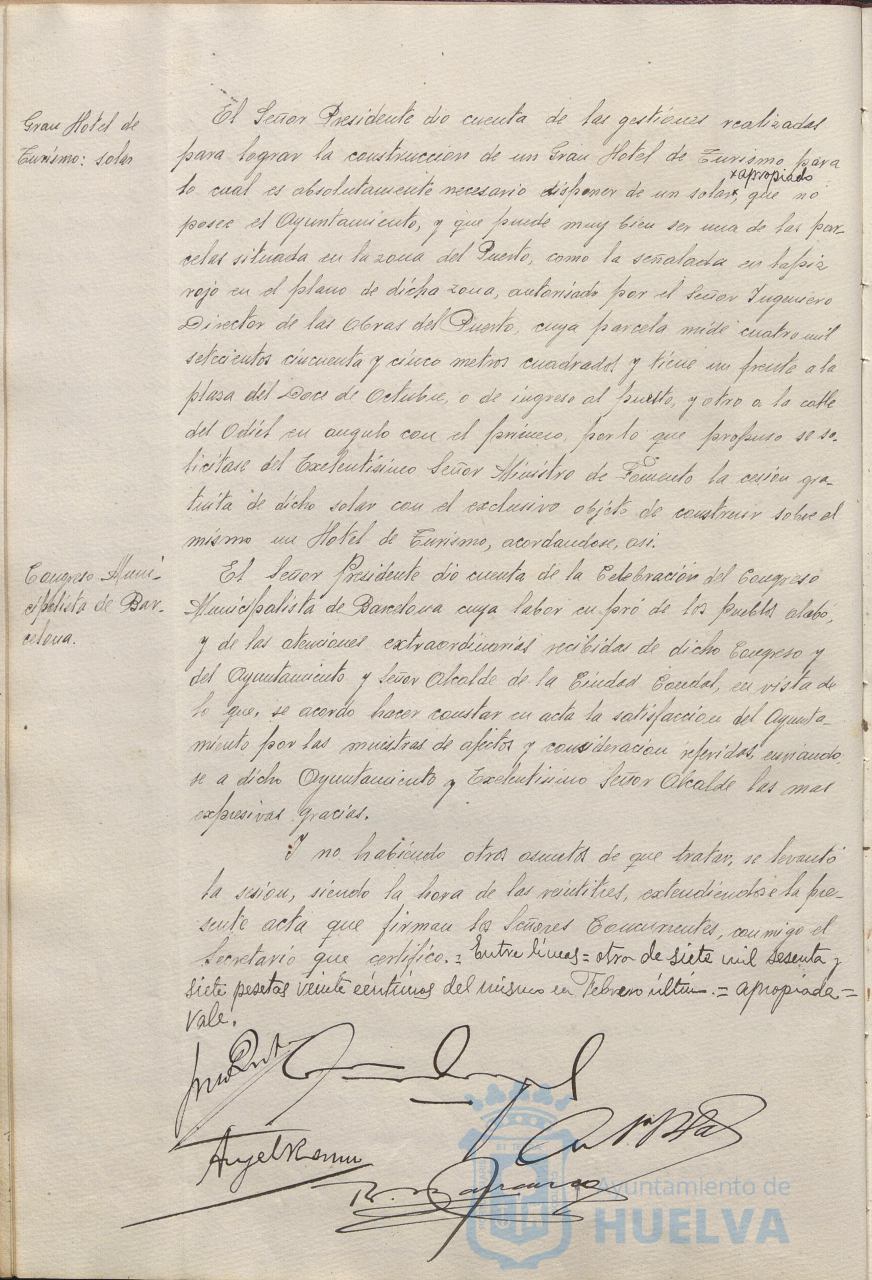 Gran Hotel de
Turismo: solar
El Señor Presidente dio cuenta de las gestiones realizadas
para lograr la construccion de un Gran Hotel de Turismo, para
x apropiado
lo cual es absolutamente necesario disponer de un solar x, que no
posee el Ayuntamiento, y que puede muy bien ser una de las par-
celas situada en la zona del Puerto, como la señalada en lapiz
rojo en el plano de dicha zona, autorisado por el Señor Ingeniero
Director de las Obras del Puerto, cuya parcela mide cuatro mil
setecientos cincuenta y cinco metros cuadrados y tiene un frente a la
plasa del Doce de Octubre, o de ingreso al puerto, y otro a la calle
del Odiel en angulo con el primero, por lo que propuso se so-
licitase del Exelentisimo Señor Ministro de Fomento la cesión gra-
tuita de dicho solar con el exclusivo objeto de construir sobre el
mismo un Hotel de Turismo, acordandose, asi.
Congreso Muni-
cipalista de Bar-
celona.
El Señor Presidente dio cuenta de la Celebración del Congreso
Municipalista de Barcelona cuya labor en pró de los pueblos alabó,
y de las atenciones extraordinarias recibidas de dicho Congreso y
del Ayuntamiento y Señor Alcalde de la Ciudad Condal, en vista de
lo que, se acordo hacer constar en acta la satisfaccion del Ayunta-
miento por las muestras de afectos y consideracion referidas, enviando
se a dicho Ayuntamiento y Exelentisimo Señor Alcalde las mas
expresivas gracias.
Y no habiendo otros asuntos de que tratar, se levantó
la sesion, siendo la hora de las veintitres, extendiendose la pre-
sente acta que firman los Señores Concurrentes, conmigo el
Secretario que certifico. = Entre líneas = otra de siete mil sesenta y
siete pesetas veinte céntimos del mismo en Febrero últim. = apropiada =
Vale.
Ayuntamiento de
HUELVA